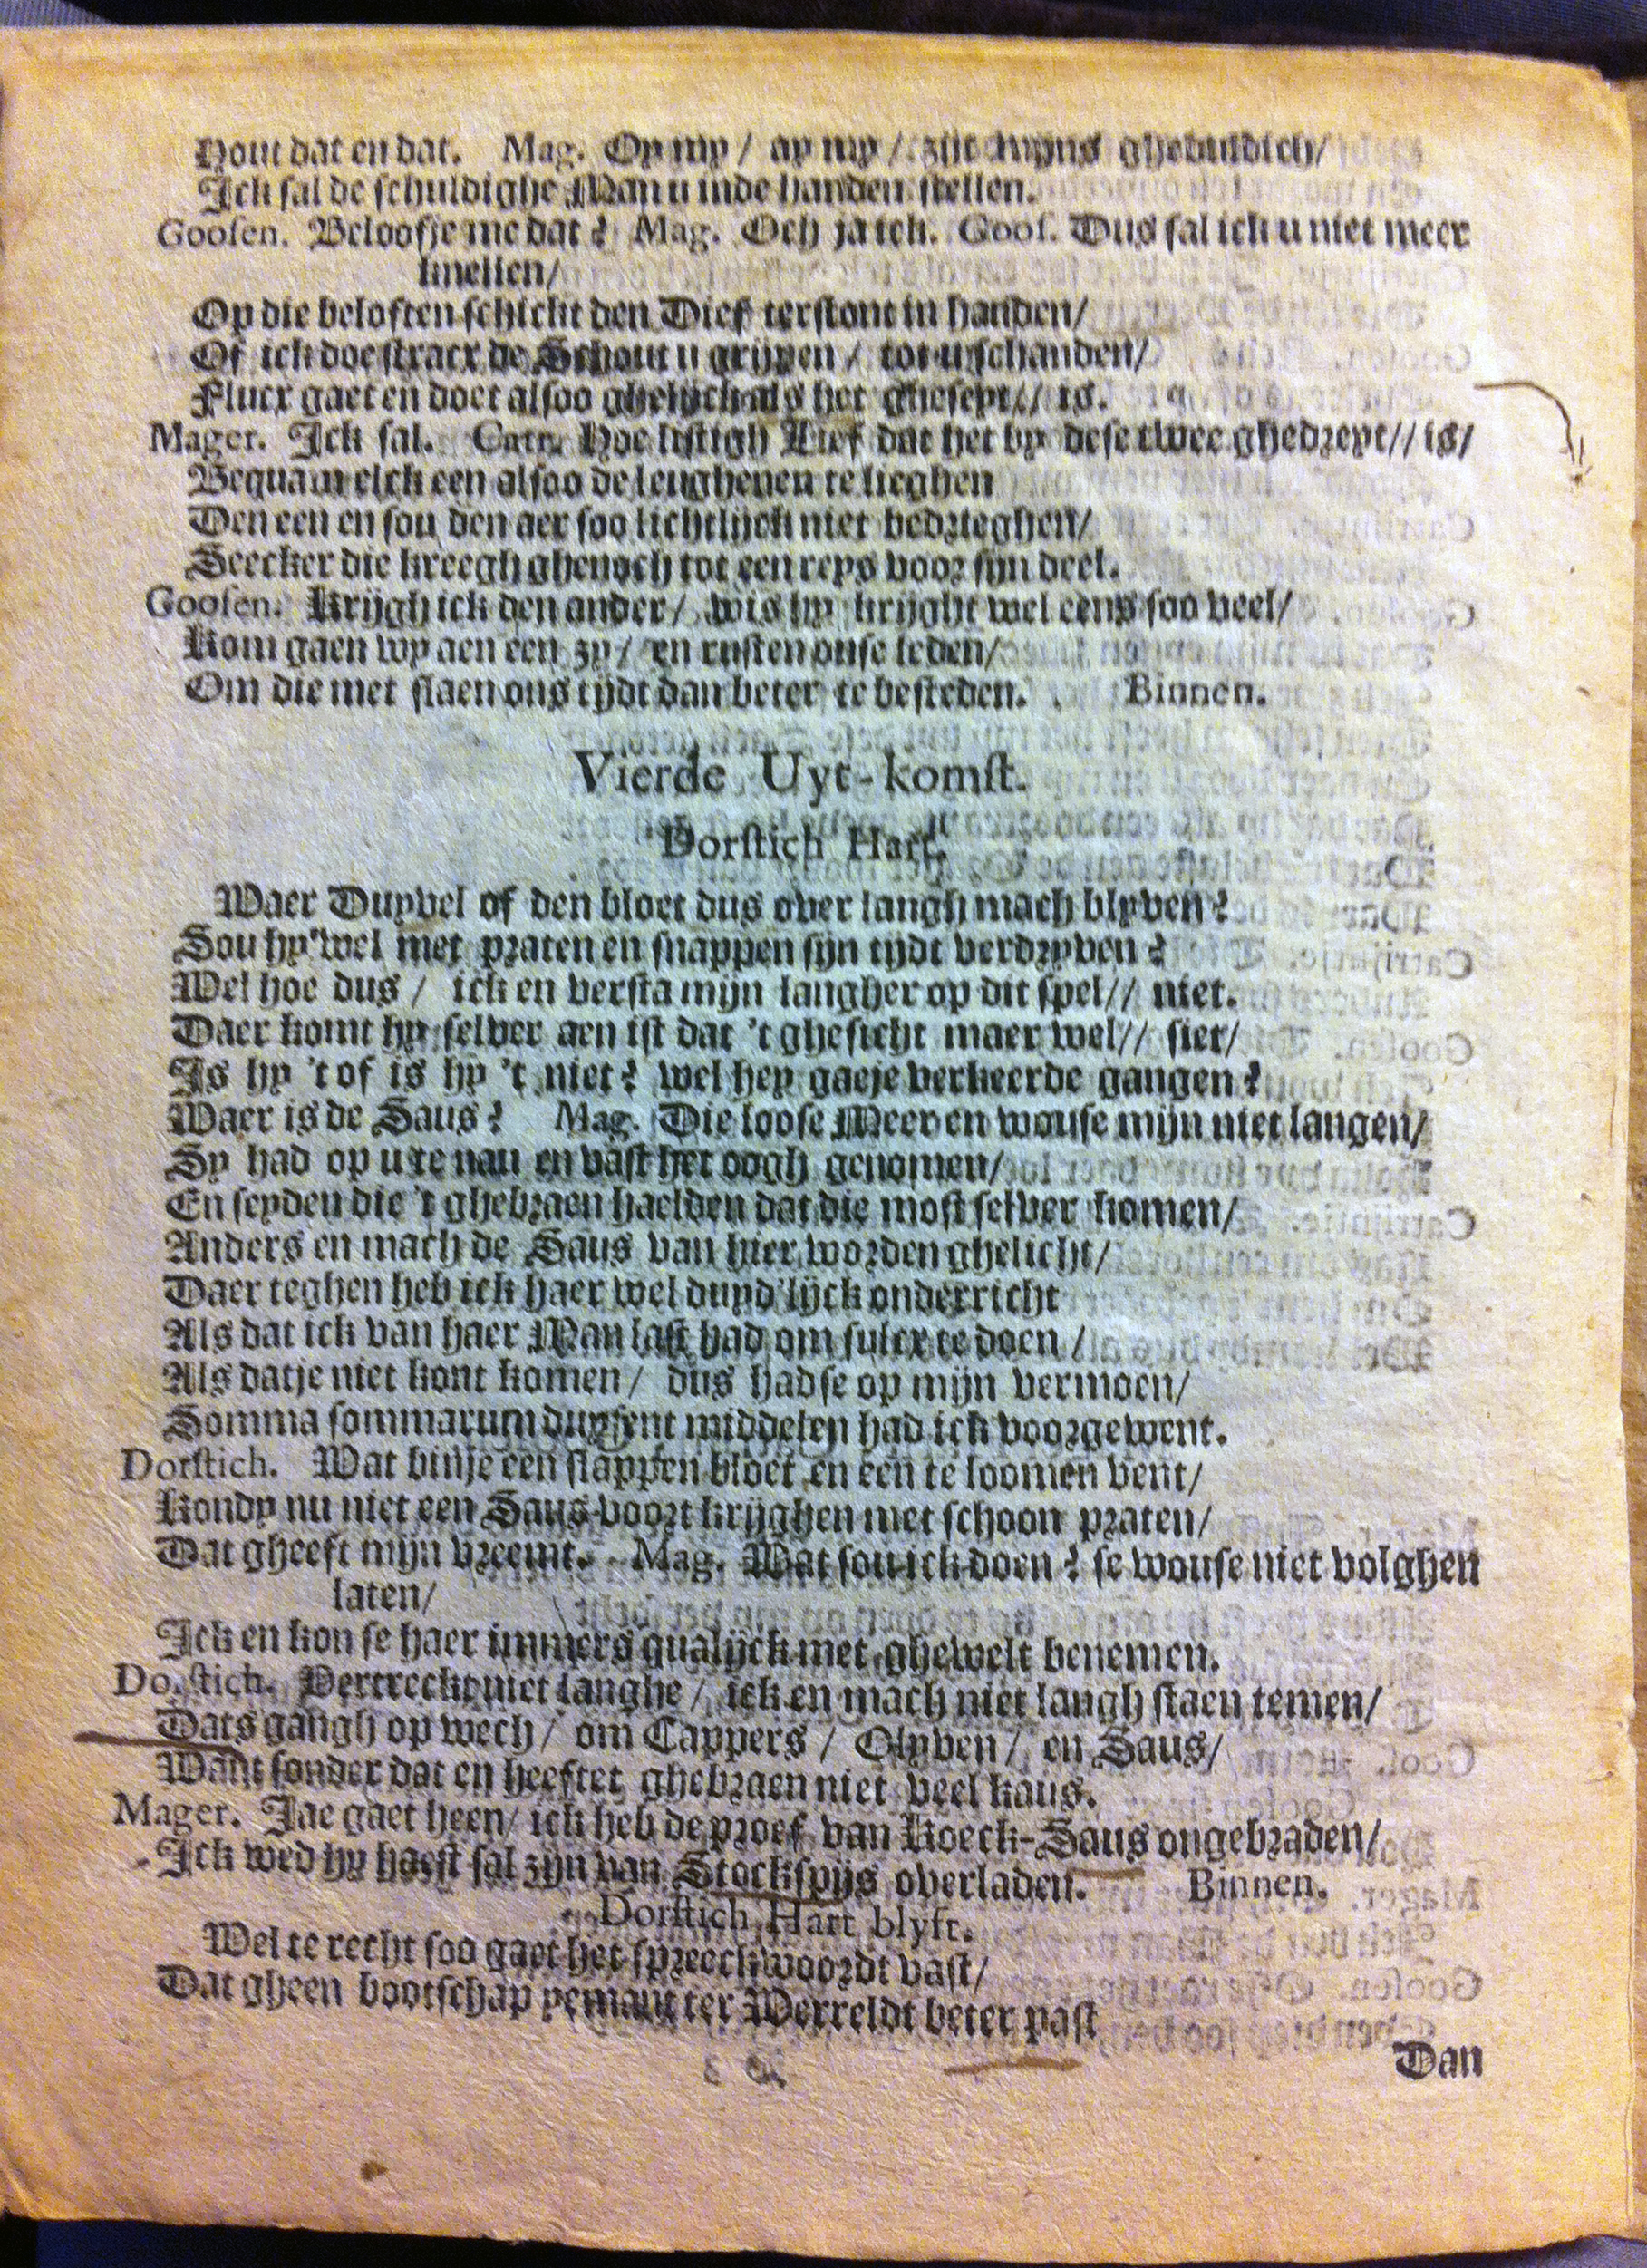 Hout dat en dat. Mag. Op my / ay my / zijt mijns ghedudich/
Ick sal de schuldighe Man u inde handen stellen.
Goosen. Beloofje me dat? Mag. Och ja ick. Goos. Dus sal ick u niet meer
knellen/
Op die beloften schickt den Dief terstont in handen/
Of ick doe stracx de Schout u grijpen / tot u schanden/
Flucx gaet en doet alsoo ghelijck als het gheseyt// is.
Mager. Ick sal. Catr. Hoe listigh Lief dat het by dese twee ghedreyt// is/
Bequam elck een alsoo de leughenen te lieghen
Den een en sou den aer soo lichtlijck niet bedrieghen/
Seecker die kreegh ghenoch tot een reys voor sijn deel.
Goosen. Krijgh ick den ander / wis hy krijght wel eens soo veel/
Kom gaen wy aen een zy / en rusten onse leden/
Om die met slaen ons tijdt dan beter te besteden. Binnen.
Vierde Uyt-komst.
Dorstich Hart.
Waer Duyvel of den bloet dus over langh mach blyven?
Sou hy wel met praten en snappen sijn tijdt verdryven?
Wel hoe dus / ick en versta mijn langher op dit spel// niet.
Daer komt hy selver aen ist dat 't ghesicht maer wel// siet/
Is hy 't of is hy 't niet? wel hey gaeje verkeerde gangen?
Waer is de Saus? Mag. Die loose Meer en wouse mijn niet langen/
Sy had op u te nau en vast het oogh genomen/
En seyden die 't ghebraen haelden dat die most selver komen/
Anders en mach de Saus van hier worden ghelicht/
Daer teghen heb ick haer wel duyd'lijck onderricht
Als dat ick van haer Man last had om sulcx te doen /
Als datje niet kont komen / dus had se op mijn vermoen/
Somma sommarum duysent middelen had ick voorgewent.
Dorstich. Wat binje een slappen bloet en een te loomen vent/
Kondy nu niet een Saus voort krijghen met schoon praten/
Dat gheeft mijn vreemt. Mag. Wat sou ick doen? se wouse niet volghen
laten/
Ick en kon se haer immers qualijck met ghewelt benemen.
Dorstich. Vertreckt niet langhe / ick en mach niet langh staen temen/
Dats gangh op wech / om Cappers / Olyven / en Saus/
Want sonder dat en heeftet ghebraen niet veel kaus.
Mager. Jae gaet heen / ick heb de proef van Koeck-Saus ongebraden/
Ick wed hy haest sal zijn van Stockspijs overladen. Binnen.
Dorstich Hart blyft.
Wel te recht soo gaet het spreeckwoordt vast/
Dat gheen bootschap yemant ter Werreldt beter past
Dan